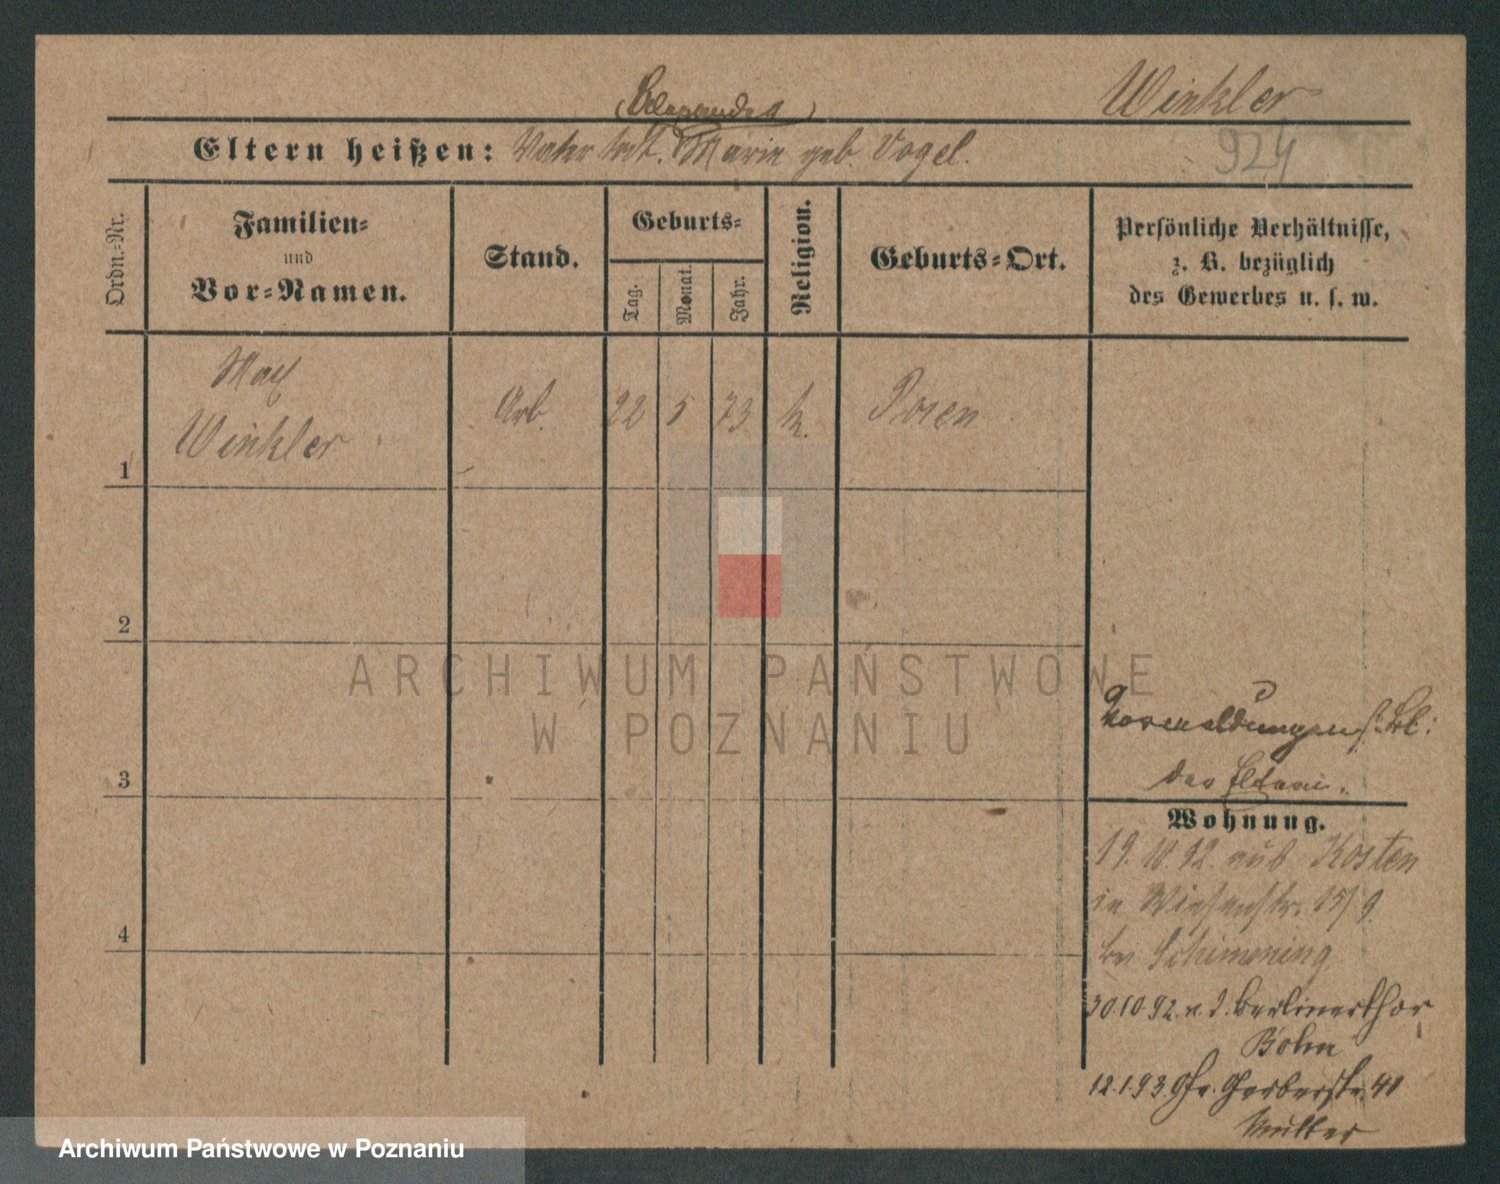 Winkler
(Alexander)
Eltern heißen: Vater tot. Marie geb. Vogel.
924
Ordn.-Nr.
Familien-
und
Vor-Namen.
Stand.
Geburts-
Tag.
Monat.
Jahr.
Religion.
Geburts-Ort.
Persönliche Verhältnisse,
z. B. bezüglich
des Gewerbes u. s. w.
Max
Winkler
Arb.
22
5
73
k.
Posen
1
2
3
4
Vormeldungen s. Bl.
der Eltern.
Wohnung.
19.10.92. aus Kosten
in Wiesenstr. 15/9
bei Schimening
30.10.92. v. d. Berlinerthor
Böhm
12.1.93. Gr. Gerberstr. 41
Mutter
ARCHIWUM PAŃSTWOWE
W POZNANIU
Archiwum Państwowe w Poznaniu